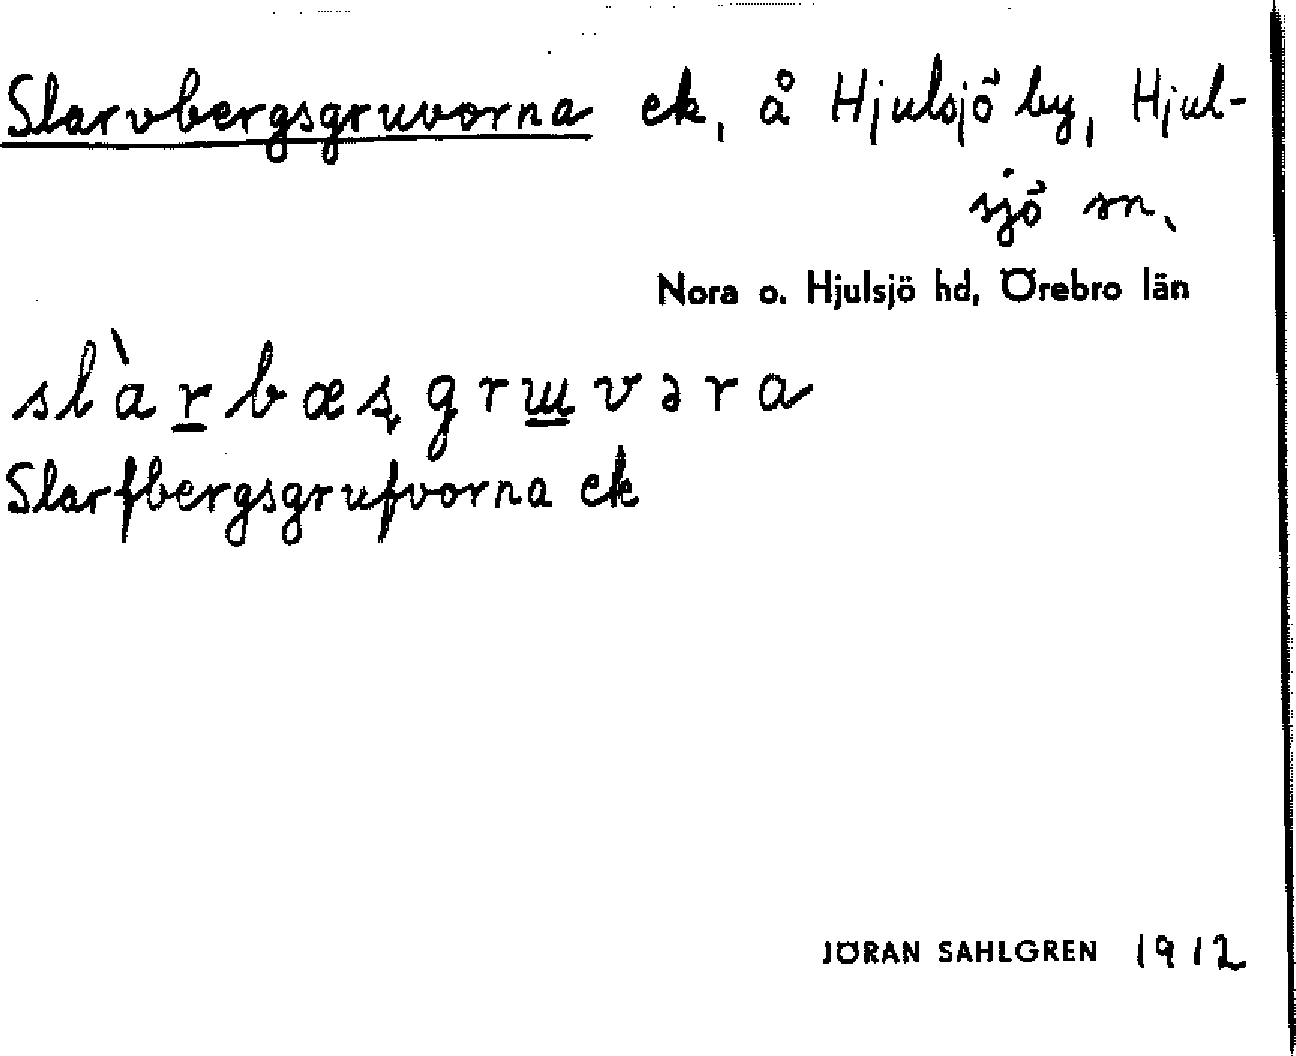 Slarvbergsgruvorna ek, å Hjulsjö by, Hjul-
sjö sn.
Nora o. Hjulsjö hd, Örebro län
slàr̲bæʂgrɯ̲vəra
Slarfbergsgrufvorna ek
JÖRAN SAHLGREN 1912